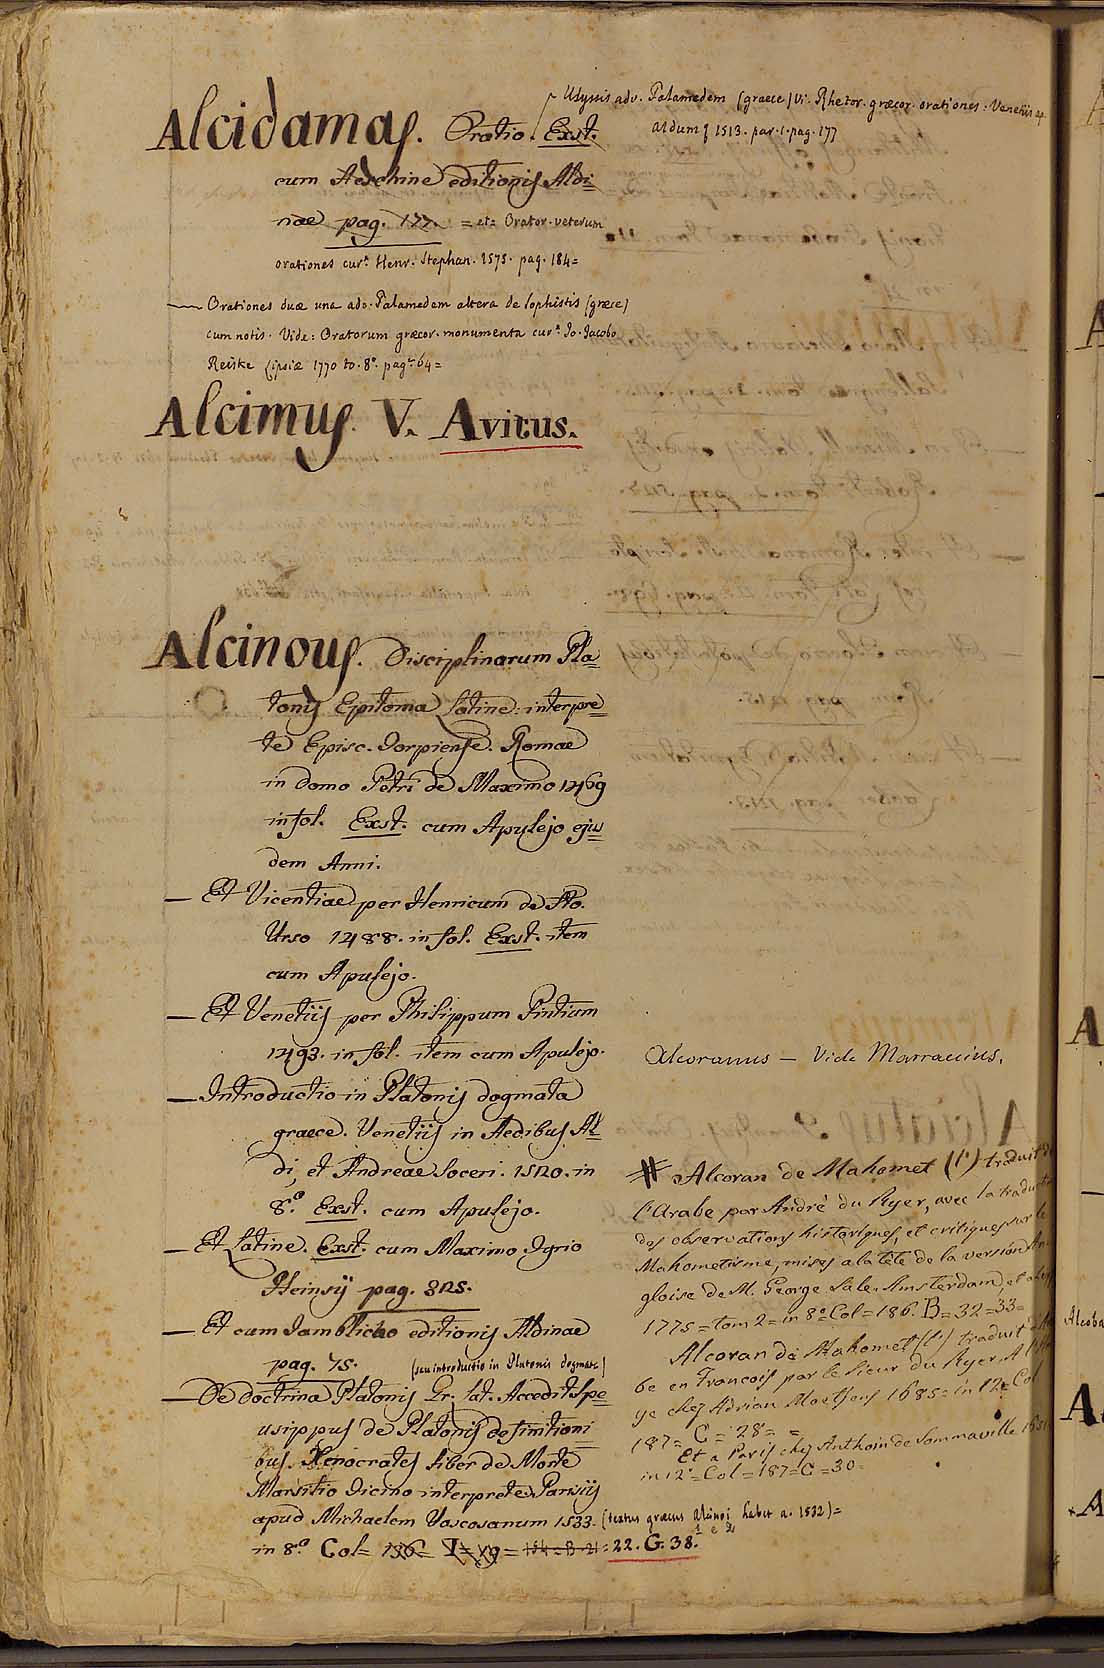 Alcidamas. Oratio. Exst.
Ulyssis adv. Palamedem (graece) Vi: Rhetor. graecor. orationes. Venetiis ap.
Aldum f 1513. par. 1. pag. 177
cum Aeschine editionis Aldi=
nae pag. 177. = et= Orator. veterum
orationes curª. Henr. Stephan. 1575. pag. 184=
— Orationes duae una adv. Palamedem altera de Sophistis (graece)
cum notis. Vide: Oratorum graecor. monumenta curª. Jo. Jacobo
Reiske Lipsiae 1770 to. 8º. pagª 64=
Alcimus. V. Avitus.
Alcinous. Disciplinarum Pla=
tonis Epitoma Latine: interpre=
te Episc. Torpiense. Romae
in domo Petri de Maximo 1469
in fol. Exst. cum Apulejo ejus=
dem Anni.
— Et Vicentiae per Henricum de Sto.
Urso 1488. in fol. Exst. item
cum Apulejo.
— Et Venetiis per Philippum Pintium
1493. in fol. item cum Apulejo.
— Introductio in Platonis dogmata
graece. Venetiis in Aedibus Al=
di, et Andreae Soceri. 1520. in
8.º Exst. cum Apulejo.
— Et Latine. Exst. cum Maximo Tyrio
Heinsij pag. 325.
— Et cum Jamblicho editionis Aldinae
pag. 75. (seu introductio in Platonis dogmata)
— De doctrina Platonis Gr. lat. Accedit Spe=
usippus de Platonis definitioni=
bus. Xenocrates liber de Morte
Marsilio Ficino interprete. Parisiis
apud Michaelem Vascosanum 1533. (textus graecus Alcinoi habet a. 1532)=
in 8.º Col= 136= I= 19= 154= B. 21= 22. G. 38.
Alcoranus — Vide Marraccius.
# Alcoran de Mahomet (l') traduit de
l'Arabe par André du Ryer, avec la traduction
des observations historiques, et critiques sur le
Mahometisme, mises a la tête de la version An
gloise de M. George Sale. Amsterdam, et a
1775 = tom 2 = in 8º Col = 186. B = 32 = 33 =
Alcoran de Mahomet (l') traduit
be en Francois par le Sieur du Ryer. A
ye chez Adrian Moetjens 1685 = in 12= Col
187= C = 28 = =
Et a Paris chez Anthoin de Sommaville
in 12º = Col = 187 = C = 30